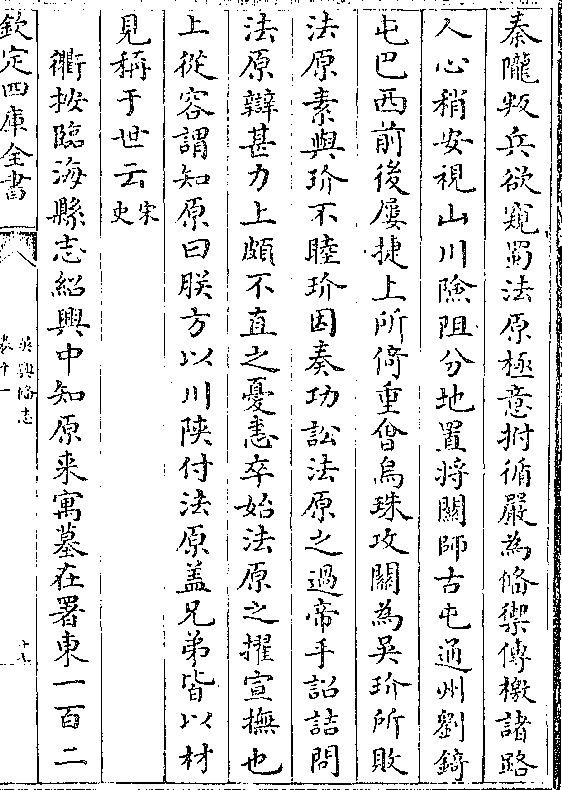 秦隴叛兵欲窺蜀法原極意拊循嚴為俻禦傳檄諸路
人心稍安視山川險阻分地置将關師古屯通州劉錡
屯巴西前後屢捷上所倚重㑹烏珠攻關為吳玠所敗
法原素與玠不睦玠因奏功訟法原之過帝手詔詰問
法原辯甚力上頗不直之憂恚卒始法原之擢宣撫也
上從容謂知原曰朕方以川陝付法原盖兄弟皆以材
見稱于世云宋史
衢按臨海縣志紹興中知原来寓墓在署東一百二
欽定四庫全書
吳興俻志
卷十一